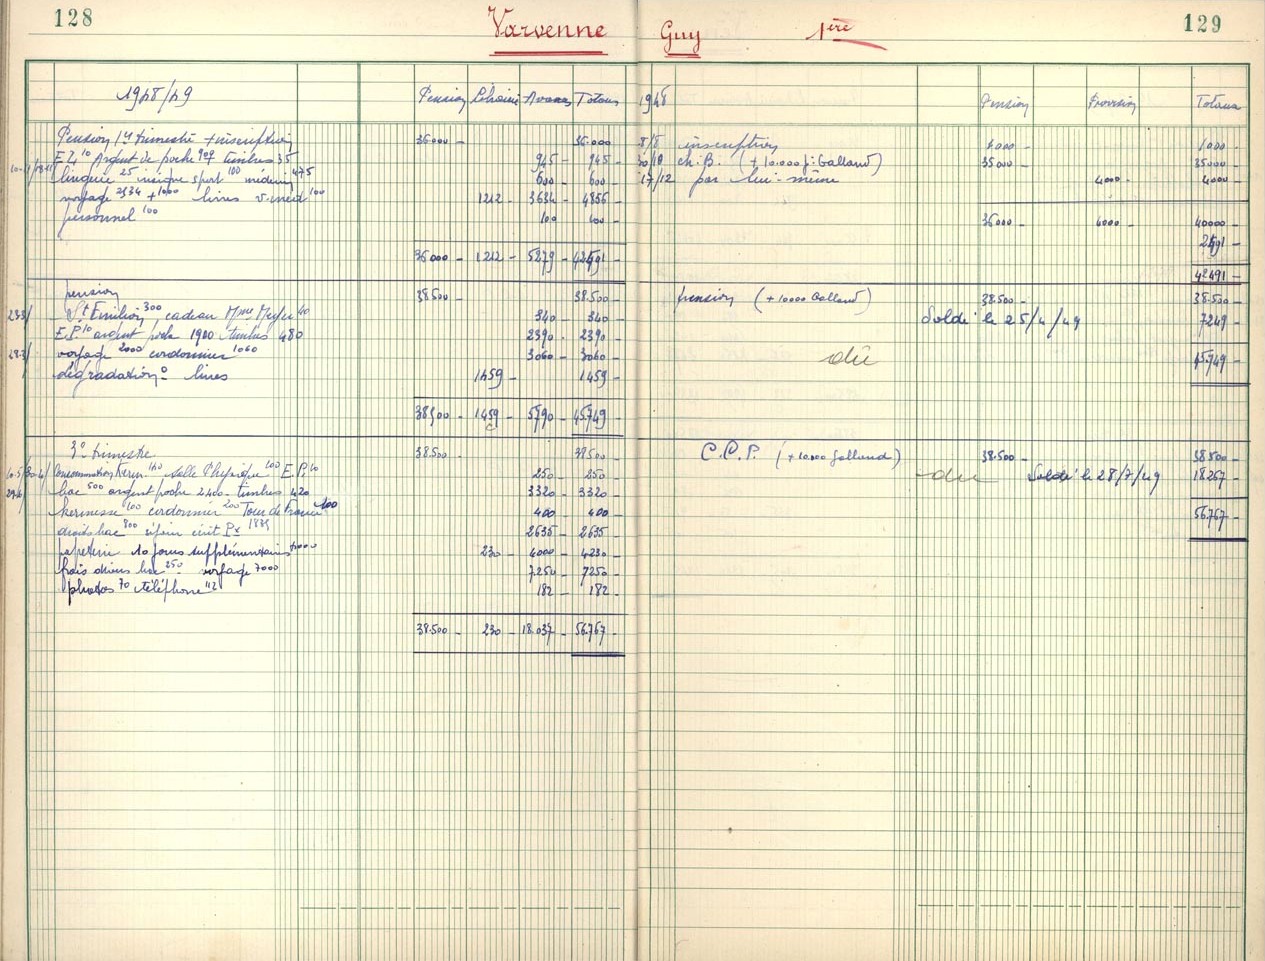 128
Varvenne Guy 1ère
129
1948/49 Pension Avances Totaux
Pension 1er trimestre + inscription 36.000 - 36.000 -
Argent de poche timbres 35 945 - 945 -
lingerie 25 insigne sport 100 médecin 475 600 - 600 -
voyage 2534 + 1000 livres 100 1212 - 3634 - 4856 -
personnel 100 100 - 100 -
36000 - 1212 - 5279 - 42491 -
pension 38.500 - 38.500 -
St Emilion 300 cadeau Mme 40 340 - 340 -
E.P. 10 argent poche 1900 timbres 480 2390 - 2390 -
voyage 2000 cordonnier 1060 3060 - 3060 -
dégradation livres 1459 - 1459 -
38500 - 1459 - 5790 - 45.749 -
3e trimestre 38.500 - 38500 -
Salle Physique 100 E.P. 10 250 - 250 -
bac 500 argent poche 2400 - timbres 420 3320 - 3320 -
kermesse 100 cordonnier 200 Tour de France 100 400 - 400 -
droits bac 800 1835 2635 - 2635 -
papeterie 10 jours supplémentaires 4000 230 - 4000 - 4230 -
frais divers bac 250 voyage 7000 7250 - 7250 -
photos 70 téléphone 112 182 - 182 -
38.500 - 230 - 18.037 - 56.767 -
1948 Pension Provision Totaux
inscription 1000 - 1000 -
ch. B. (+ 10.000 Galland) 35000 - 35000 -
17/12 par lui-même 4000 - 4000 -
36000 - 4000 - 40000 -
2491 -
42491 -
pension (+ 10000 Galland) 38.500 - 38.500 -
Soldé le 25/4/49 7249 -
dû 45.749 -
C.C.P. (+ 10.000 Galland) 38.500 - 38.500 -
dû Soldé le 28/7/49 18.267 -
56.767 -